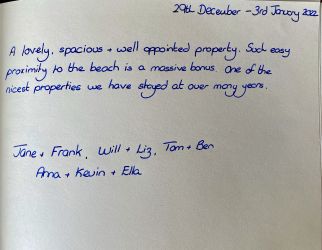 29th December - 3rd January 2022
A lovely, spacious + well appointed property. Such easy
proximity to the beach is a massive bonus. One of the
nicest properties we have stayed at over many years.
Jane + Frank, Will + Liz, Tom + Ben
Ama + Kevin + Ella